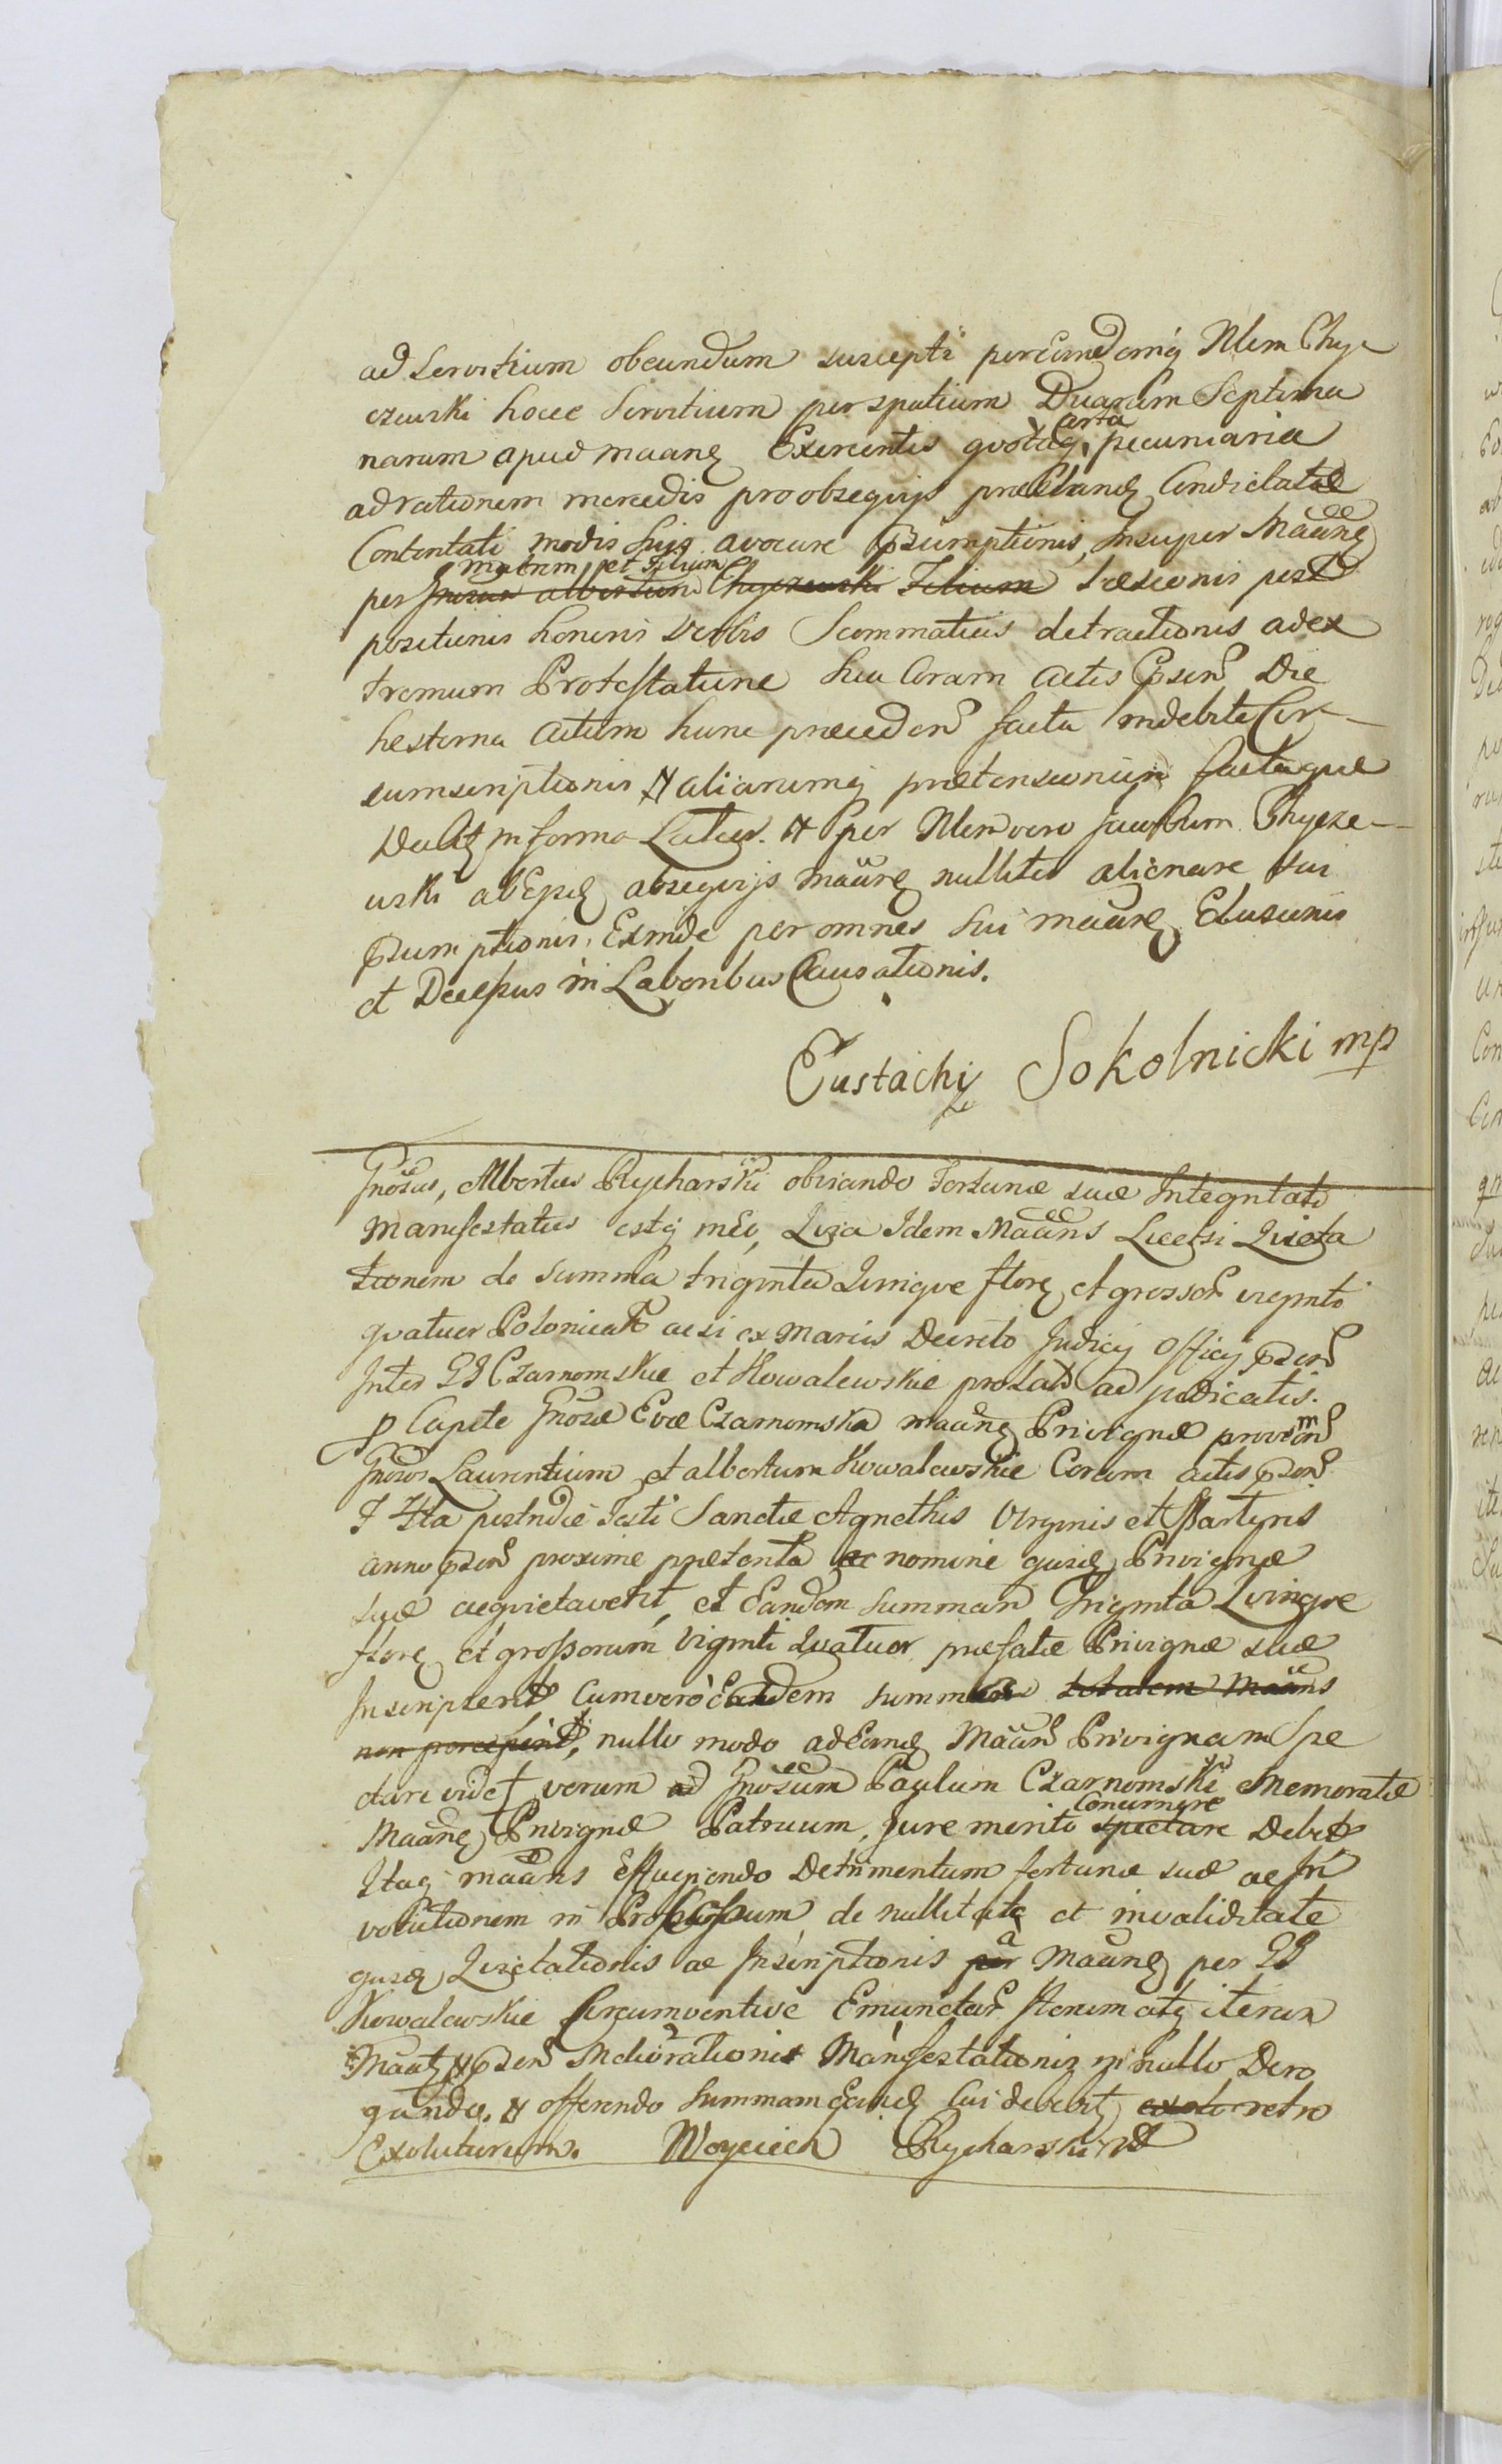 ad Servitium obeundum suscepti per eundemq Nlem Chyc
czewski hocce Servitium per spatium Duarum Septima
narum apud maanq Exercentis quotaq certa pecuniaria
ad rationem mercedis pro obsequijs praestandq Condictatae
Contentati modis suis avocare psumptionis, Insuper Maanq
per matrem et Filium Gnosum albertum Chyczewski Filium Laesionis post
positionis honoris Verbis Scommaticis detractionis ad ex
tremum Protestatione sua Coram actis psen Die
hesterna actum hunc praeceden facta indebite Cir-
cumscriptionis et aliarumq praetensionum factaque
Dulq in forma Latior. et per Nlem vero Jacobum Chycze-
wski ab Ejusd obsequijs maanq nulliter alienare sui
psumptionis, Exinde per omnes sui maanq Elusionis
et Decessus in Laboribus Causationis.
Eustachy Sokolnicki mp
Gnosus, Albertus Rycharski obviando Fortunae suae Integritati
manifestatus estq in eo, Quia Idem Maans Licet si Quieta
tionem de Summa triginta Quinque florq et grossor viginti
quatuor Polonical acsi ex Mariis Decreto Judicij Officij psen
Inter GG Czarnomskie et Kowalewskie prolato adjudicatis.
p Capite Gnosae Evae Czarnomska maanq Privignae provenien
Gnosos Laurentium et albertum Kowalewskie Coram actis psen
F IIta postridie Festi Sanctae Agnethis Virginis et Martyris
anno psen proxime praeterita ac nomine ejusd Privignae
suae acquietaverit, et Eandem summam Triginta Quinque
florq et grossorum Viginti Quatuor praefatae Privignae suae
Inscripserit Cum vero Eadem summa totalem Maans
non perceperit, nullo modo ad Eandq Maan Privignam spe
ctare videt verum ad Gnosum Paulum Czarnomski Memoratae
Maanq Privignae Patruum, jure merito Concernere spectare Debet
Itaq maans effugiendo Detrimentum fortunae suae ac in
volutionem in Processum de nullitate et invaliditate
ejusd Quietationis ac Inscriptionis per a Maanq per GG
Kowalewskie Circumventive Emunctar Iterum atq iterum
Maatq et psen Meliorationis Manifestationis in nullo Dero
gando, et offerendo summam Eandq Cui debebit exolo retro
Exoluturum. Woyciech Rycharski mp